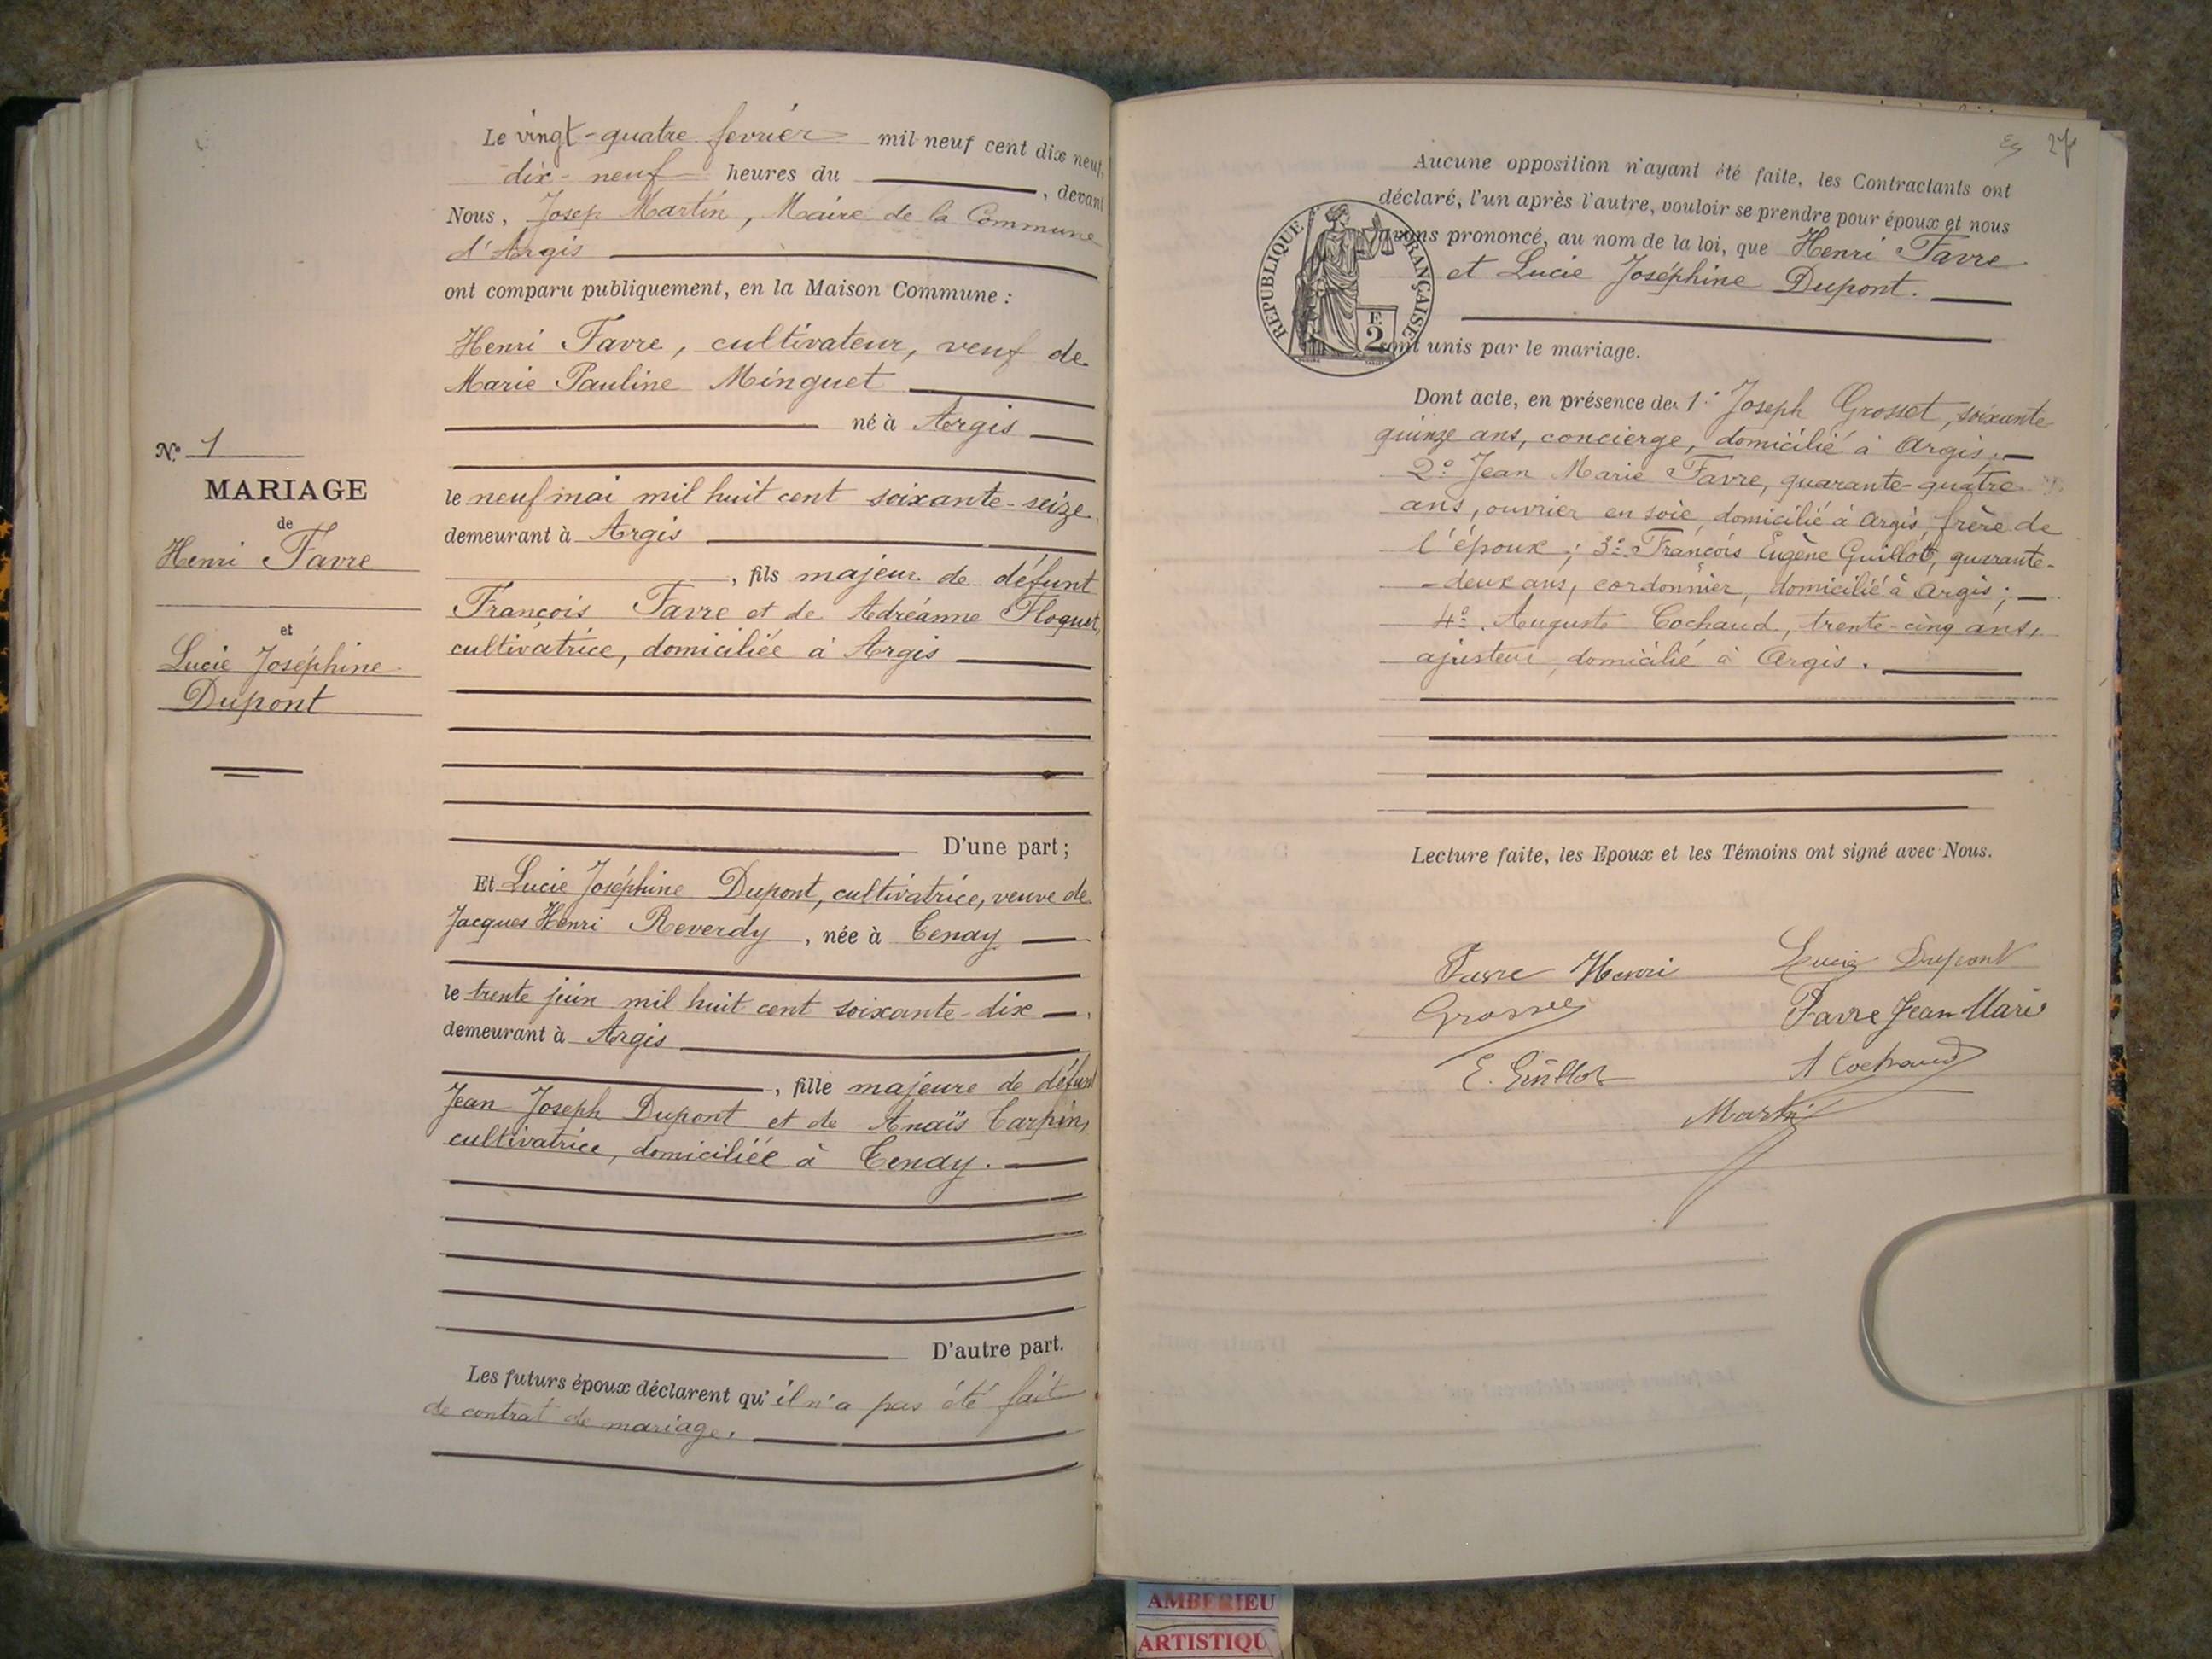 N.º 1
MARIAGE
de
Henri Favre
et
Lucie Joséphine
Dupont
Le vingt-quatre fevrier mil neuf cent dix neuf,
dix-neuf heures du , devant
Nous, Josep Martin, Maire de la Commune
d'Argis
ont comparu publiquement, en la Maison Commune :
Henri Favre, cultivateur, veuf de
Marie Pauline Minguet
né à Argis
le neuf mai mil huit cent soixante-seize,
demeurant à Argis
, fils majeur de défunt
François Favre et de Adréanne Floquet,
cultivatrice, domiciliée à Argis
D'une part ;
Et Lucie Joséphine Dupont, cultivatrice, veuve de
Jacques Henri Reverdy, née à Tenay
le trente juin mil huit cent soixante-dix,
demeurant à Argis
, fille majeure de défunt
Jean Joseph Dupont et de Anaïs Carpin,
cultivatrice, domiciliée à Tenay.
D'autre part.
Les futurs époux déclarent qu'il n'a pas été fait
de contrat de mariage.
Aucune opposition n'ayant été faite, les Contractants ont
déclaré, l'un après l'autre, vouloir se prendre pour époux et nous
avons prononcé, au nom de la loi, que Henri Favre
et Lucie Joséphine Dupont.
RÉPUBLIQUE FRANÇAISE
F
2
sont unis par le mariage.
Dont acte, en présence de: 1º Joseph Grosset, soixante
quinze ans, concierge, domicilié à Argis;
2º Jean Marie Favre, quarante-quatre
ans, ouvrier en soie, domicilié à Argis frère de
l'époux; 3º François Eugène Guillot, quarante-
-deux ans, cordonnier, domicilié à Argis;
4º Auguste Cochaud, trente-cinq ans,
ajusteur, domicilié à Argis.
Lecture faite, les Epoux et les Témoins ont signé avec Nous.
Favre Henri Lucie Dupont
Grosset Favre Jean Marie
E. Guillot A Cochaud
Martin
AMBERIEU
ARTISTIQU